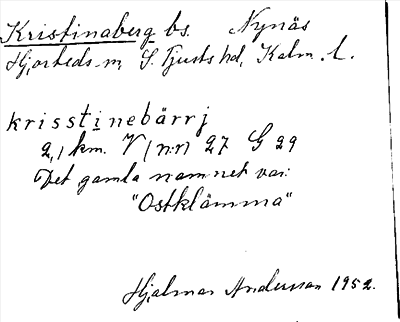 Kristinaberg bs. Nynäs
Hjorteds sn, S. Tjusts hd, Kalm. l.
krisstinebärrj
2,1 km. V (n:r) 27 G 29
Det gamla namnet var:
"Ostklämma"
Hjalmar Andersson 1952.